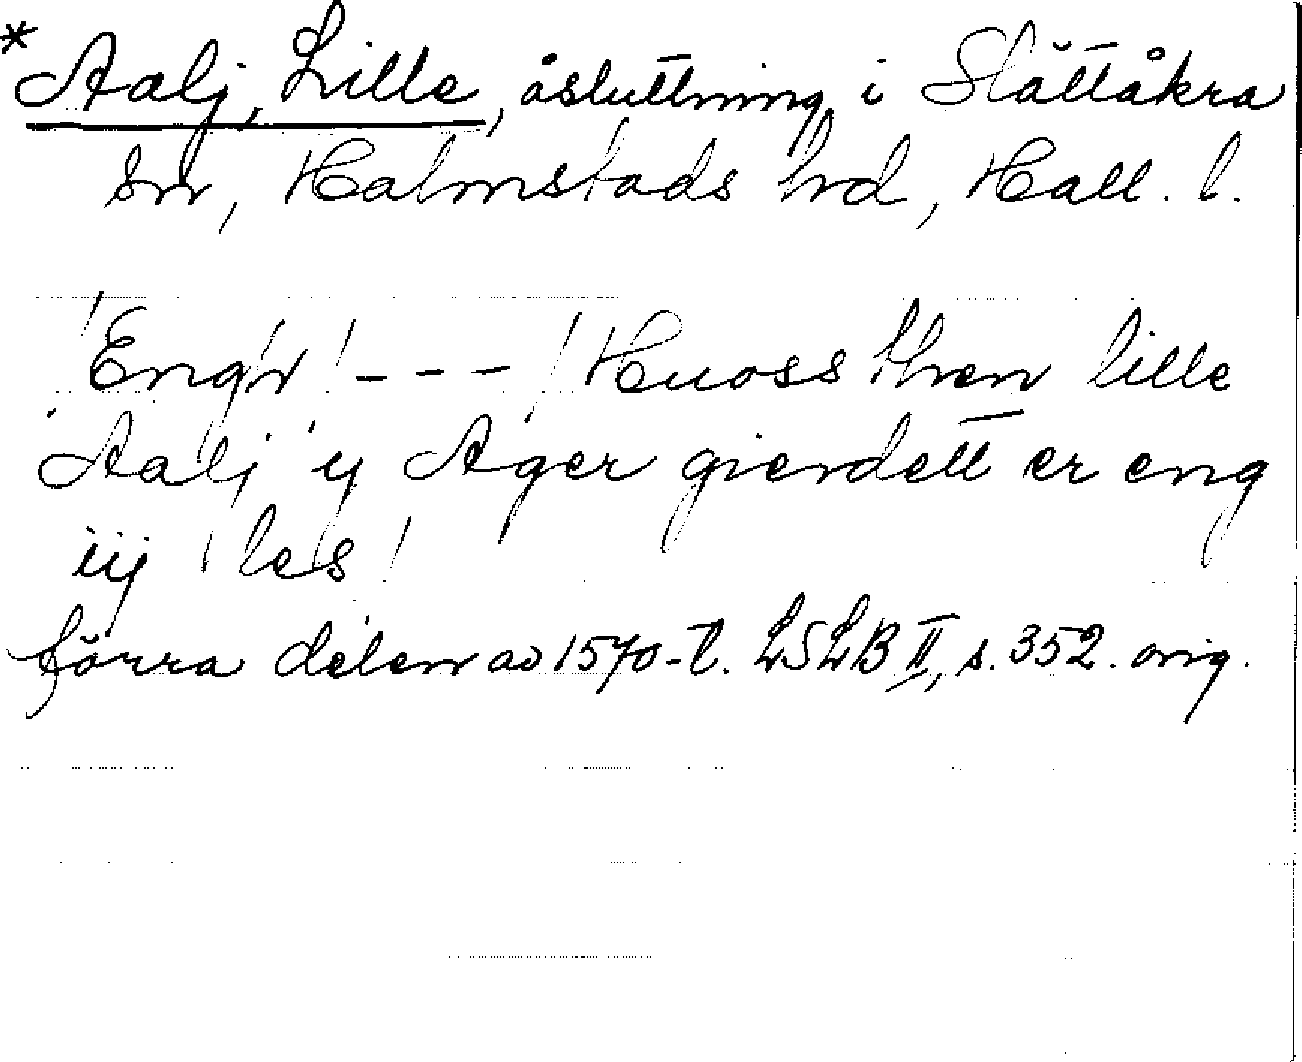 *Aalj, Lille, åsluttning i Slättåkra
sn, Halmstads hrd, Hall. l.
/Engh/ - - - / Huoss then lille
Aalj y Ager gierdett er eng
iij les/
förra delen av 1570-t. LSLB II, s. 352. orig.